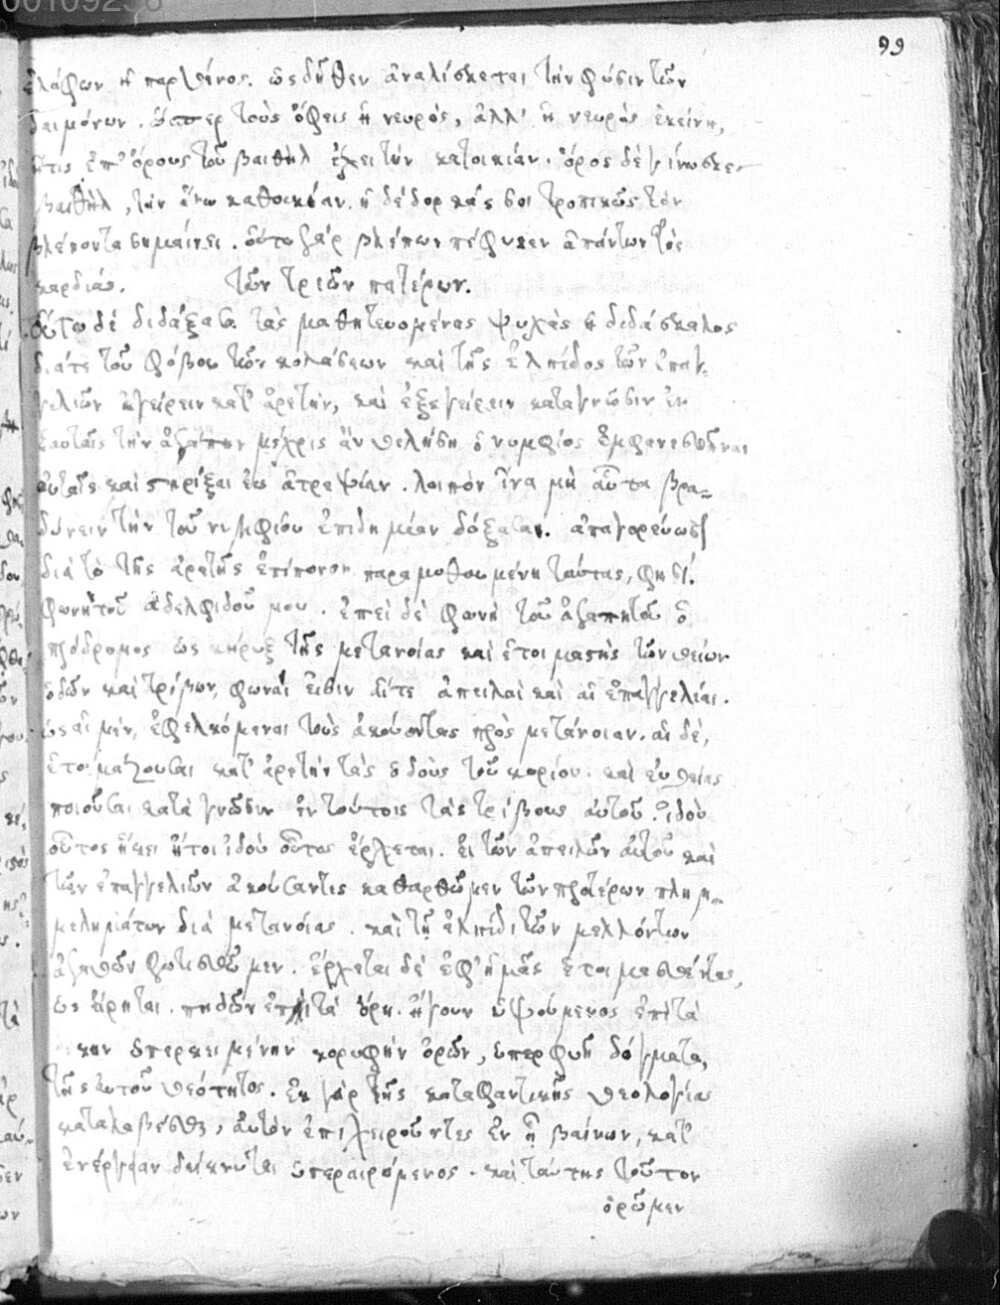 00109258
99
ἐλάφων ἢ παρθένος. ὡς δῆθεν ἀναλίσκεται τὴν φύσιν τῶν
δαιμόνων. ὥσπερ τοὺς ὄφεις ἡ νευρὸς, ἀλλ' ἡ νευρὸς ἐκείνη,
ἥτις ἐπ' ὄρους τοῦ βαιθὴλ ἔχει τὴν κατοικίαν. ὄρος δὲ γίνωσκε
βαιθὴλ, τὴν ἄνω
βλέποντα σημαίνει. οὕτω γάρ βλέπων πέφυκεν ἁπάντων τὰς
καρδίας. τῶν τριῶν πατέρων.
οὕτω δὲ διδάξασα τὰς μαθητευομένας ψυχὰς ἡ διδάσκαλος
διάτε τοῦ φόβου τῶν κολάσεων καὶ τῆς ἐλπίδος τῶν ἐπαγ-
γελιῶν ἐγείρειν κατ' ἀρετὴν, καὶ ἐξεγείρειν κατὰ γνῶσιν ἐν
ἑαυταῖς τὴν ἀγάπην μέχρις ἂν θελήσῃ ὁ νυμφίος ἐμφανισθῆναι
αὐταῖς καὶ στηρίξαι ἐν ἀτρεψίαν. λοιπὸν ἵνα μὴ αὗται βρα-
δύνειν τὴν τοῦ νυμφίου ἐπιδημίαν δόξασαι. ἀπαγορεύωσι
διὰ τὸ τῆς ἀρετῆς ἐπίπονον παραμυθουμένη ταύτας, φησί.
φωνὴ τοῦ ἀδελφιδοῦ μου. ἐπεὶ δὲ φωνὴ τοῦ ἀγαπητοῦ ὁ
πρόδρομος ὡς κήρυξ τῆς μετανοίας καὶ ἑτοιμαστὴς τῶν θείων
ὁδῶν καὶ τρίβων, φωναί εἰσιν αἵτε ἀπειλαὶ καὶ αἱ ἐπαγγελίαι.
ὡς αἱ μὲν, ἐφελκόμεναι τοὺς ἀκούοντας πρὸς μετάνοιαν. αἱ δὲ,
ἑτοιμάζουσαι κατ' ἀρετὴν τὰς ὁδοὺς τοῦ κυρίου. καὶ εὐθείας
ποιοῦσαι κατὰ γνῶσιν ἐν τούτοις τὰς τρίβους αὐτοῦ. ἰδοὺ
οὗτος ἥκει ἤτοι ἰδοὺ οὗτος ἔρχεται. εἰ τῶν ἀπειλῶν αὐτοῦ καὶ
τῶν ἐπαγγελιῶν ἀκούσαντες καθαρθῶμεν τῶν προτέρων πλημ-
μελημάτων διὰ μετανοίας. καὶ τῇ ἐλπίδι τῶν μελλόντων
ἀγαθῶν φωτισθῶμεν. ἔρχεται δὲ ἐφ' ἡμᾶς ἑτοιμασθέντας,
ὡς εἴρηται. πηδῶν ἐπὶ τὰ ὄρη. ἤγουν ὑψούμενος ἐπὶ τὰ
κην ὑπερκειμένην κορυφὴν ὀρῶν, ὑπερφυῆ δόγματα,
τῆς αὐτοῦ θεότητος. ἐκ γὰρ τῆς καταφαντικῆς θεολογίας
καταλαβέσθαι, αὐτὸν ἐπιχειροῦντες ἐν ᾗ βαίνων, κατ'
ἐνέργειαν δείκνυται ὑπεραιρόμενος. καὶ ταύτης τοῦτον
ὁρῶμεν